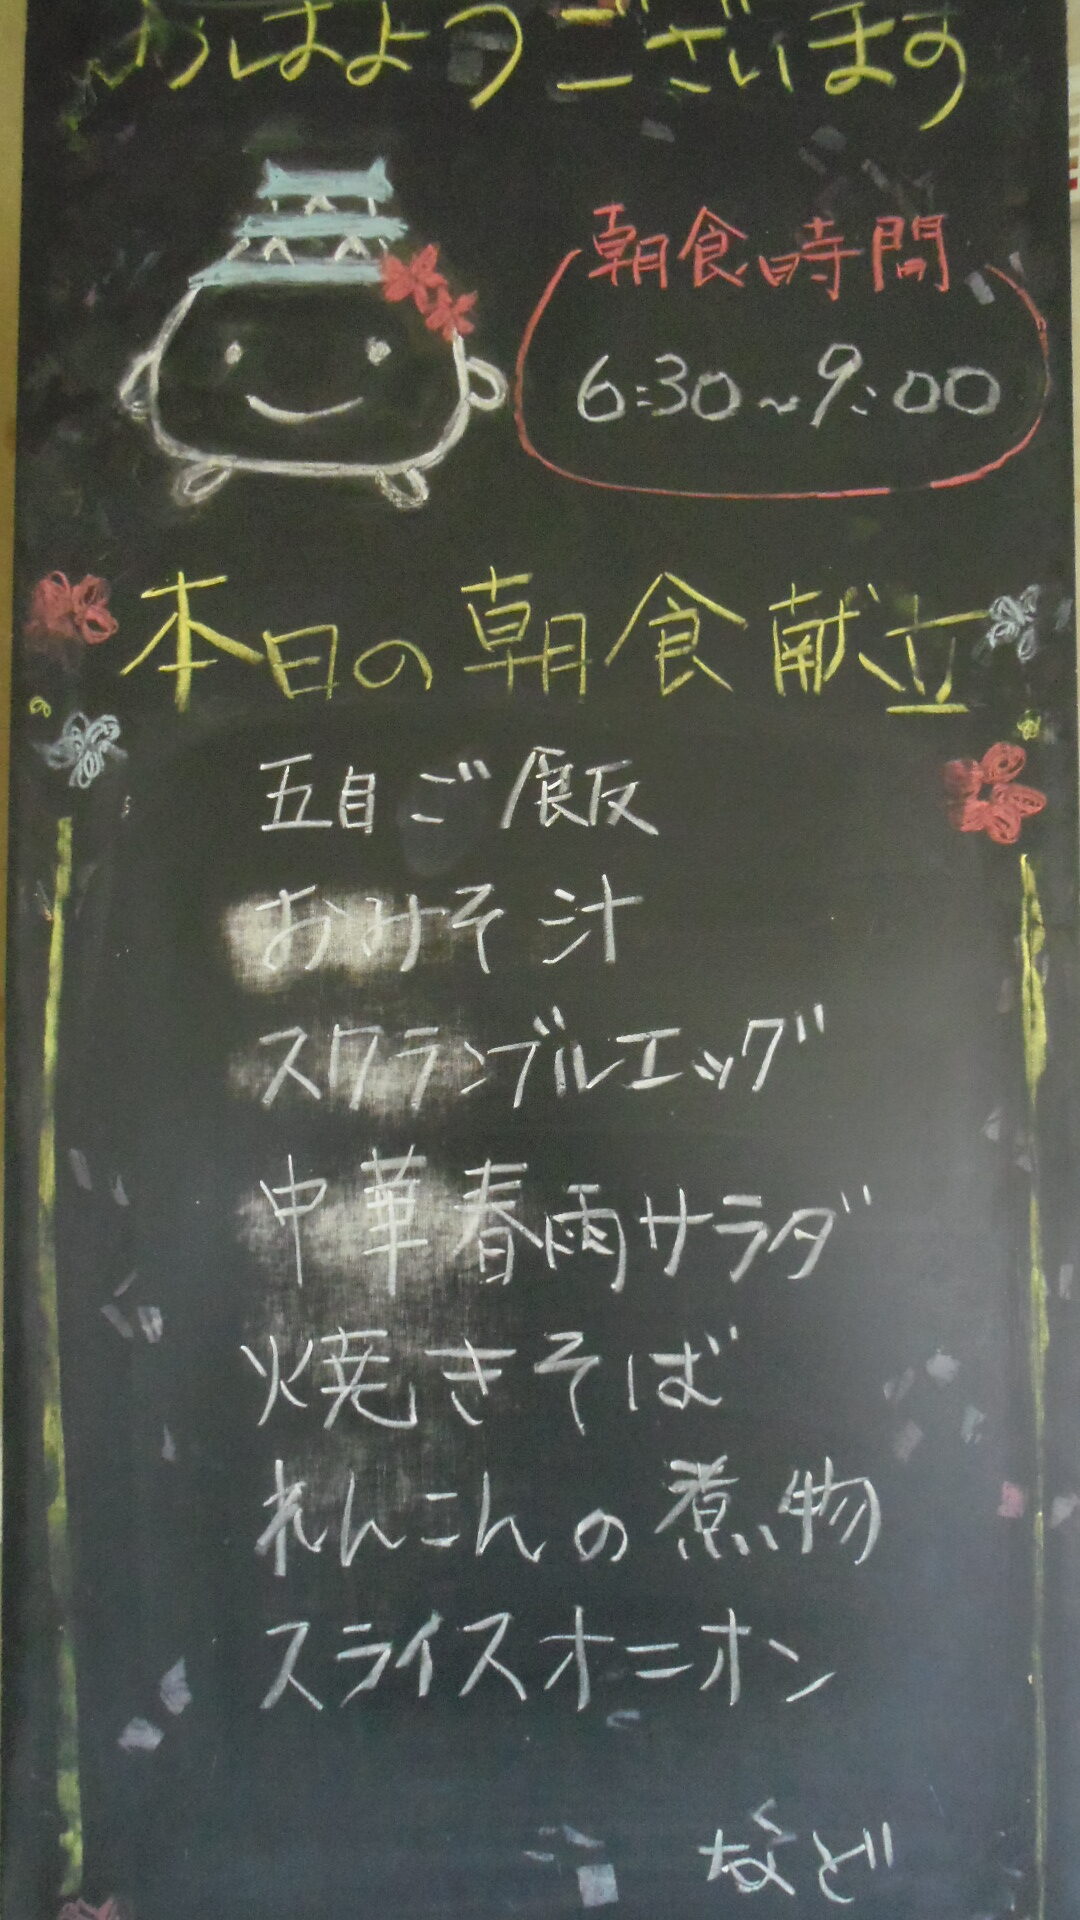 おはようございます
朝食時間
6:30～9:00
本日の朝食献立
五目ご飯
おみそ汁
スクランブルエッグ
中華春雨サラダ
焼きそば
れんこんの煮物
スライスオニオン
など